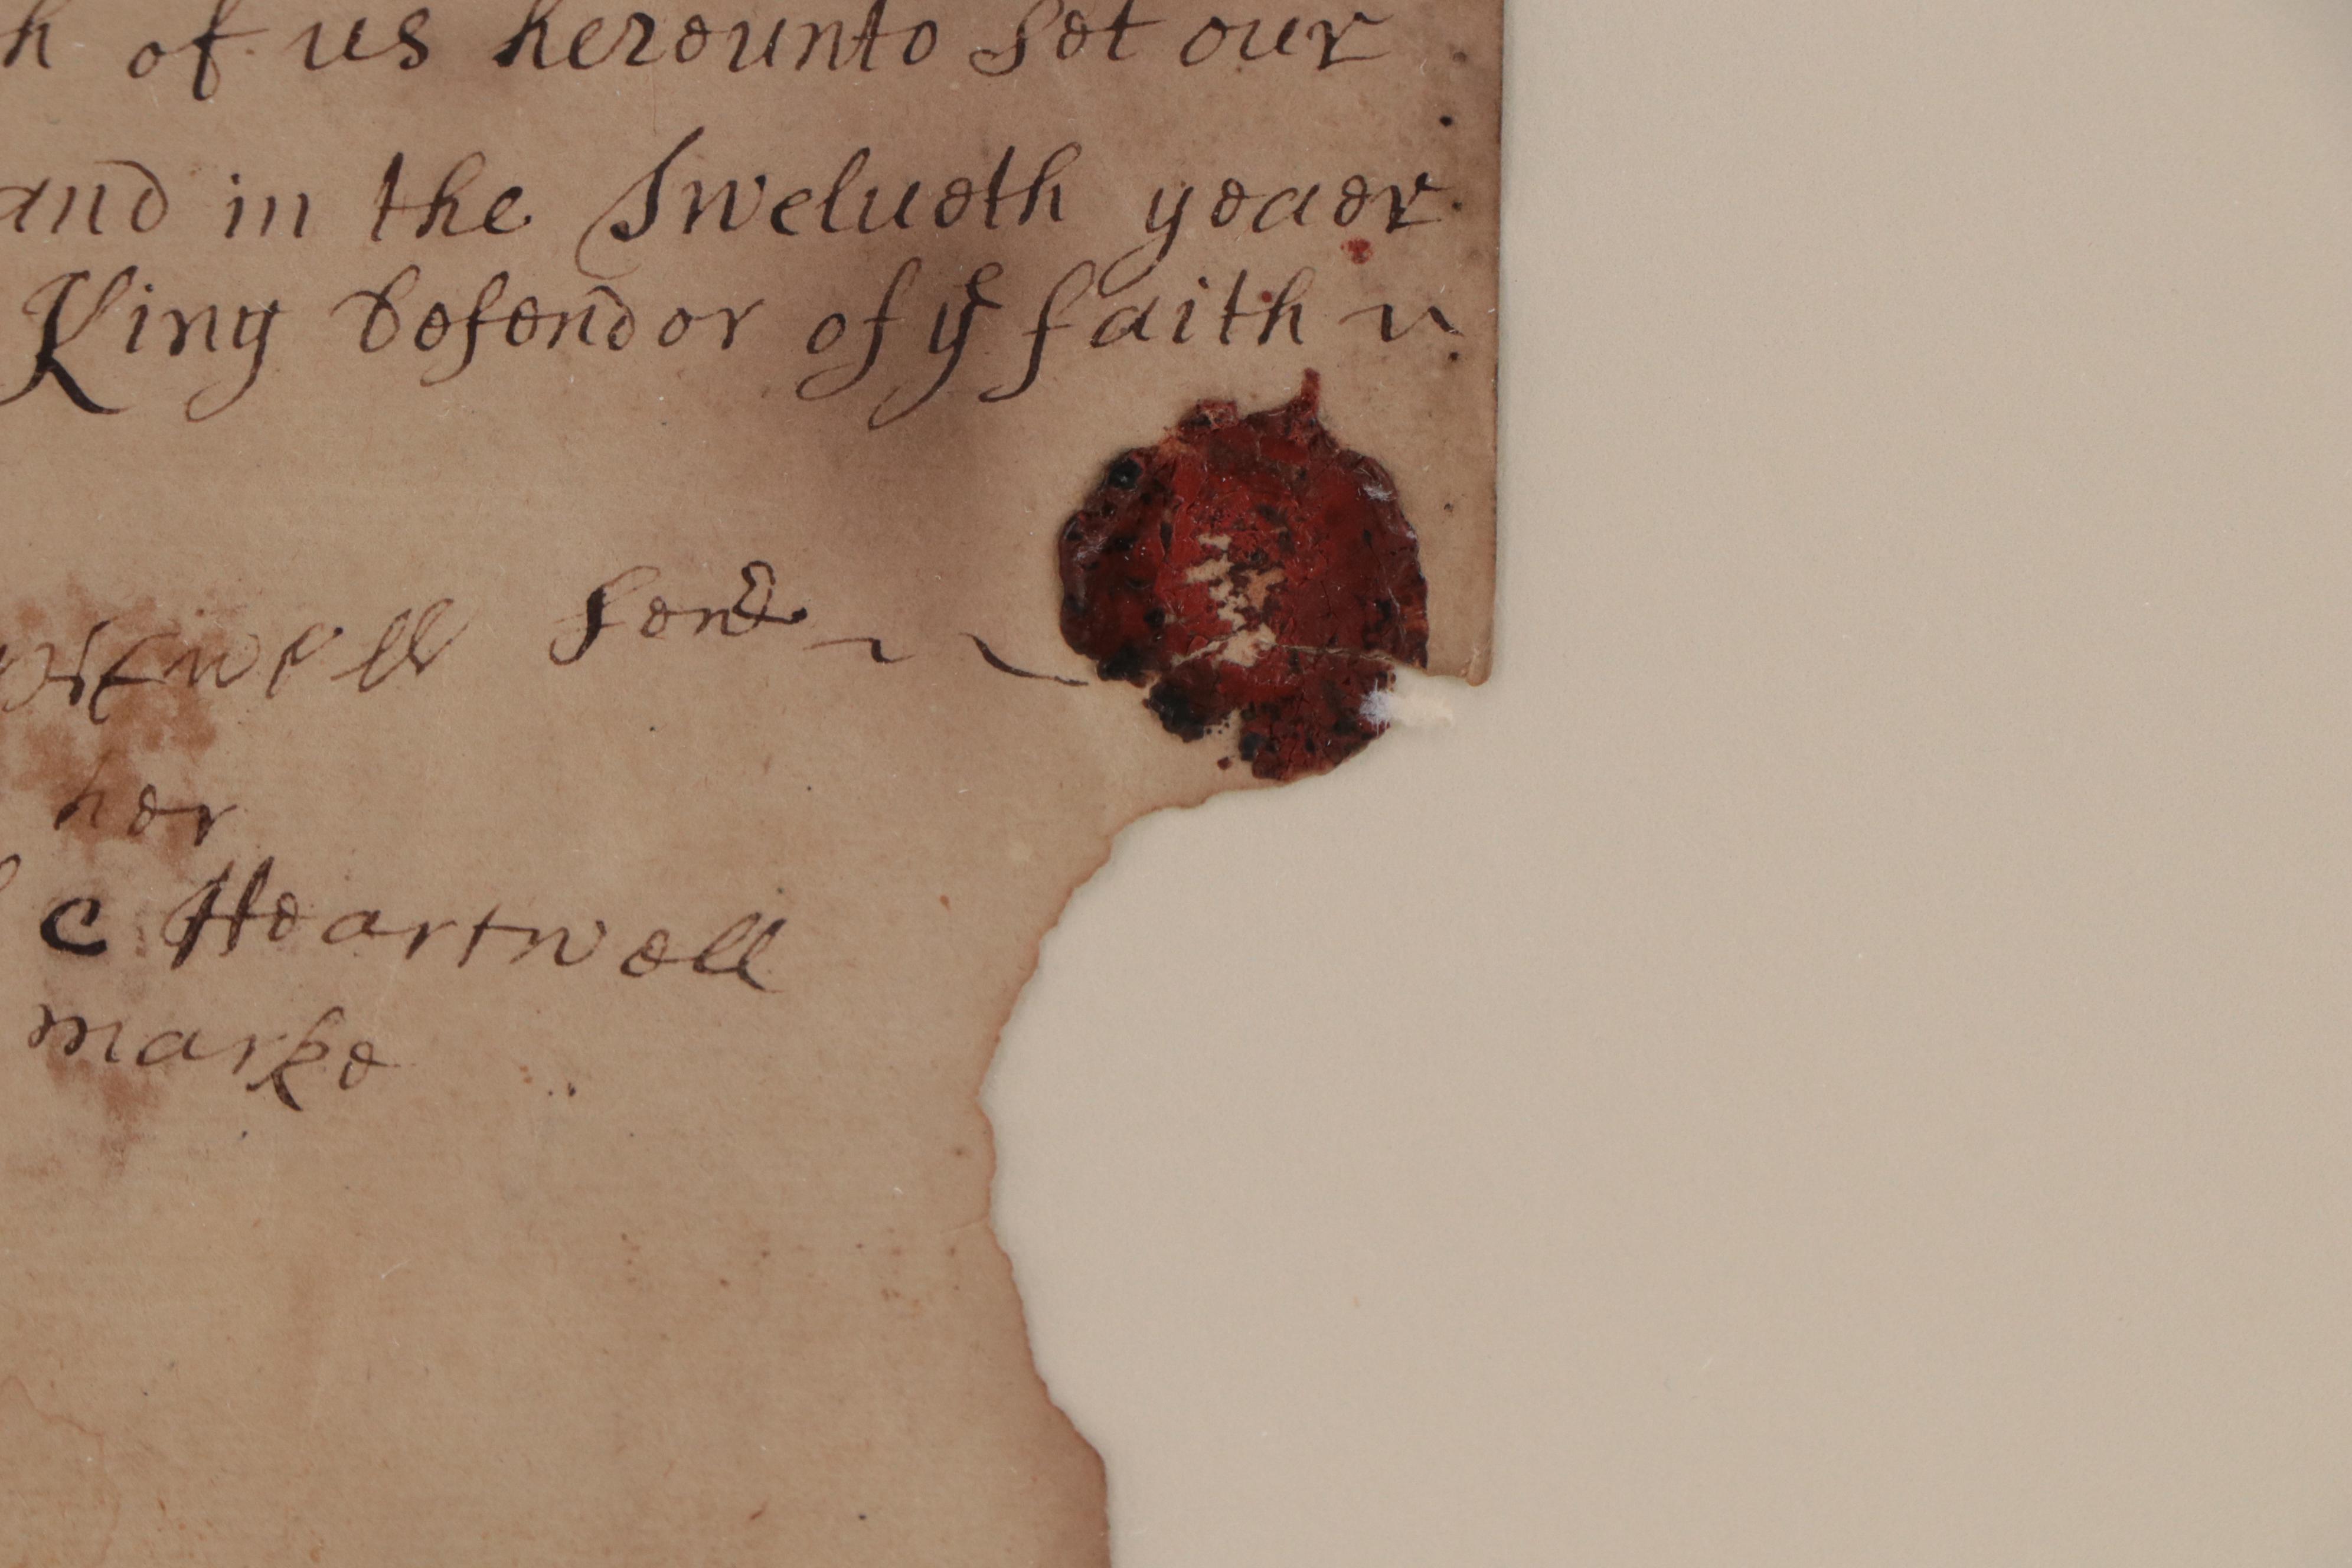 h of us hereunto Set our
and in the Twelueth yeaer
King defendor of ye faith
rtwell Sene
her
c Heartwell
marke